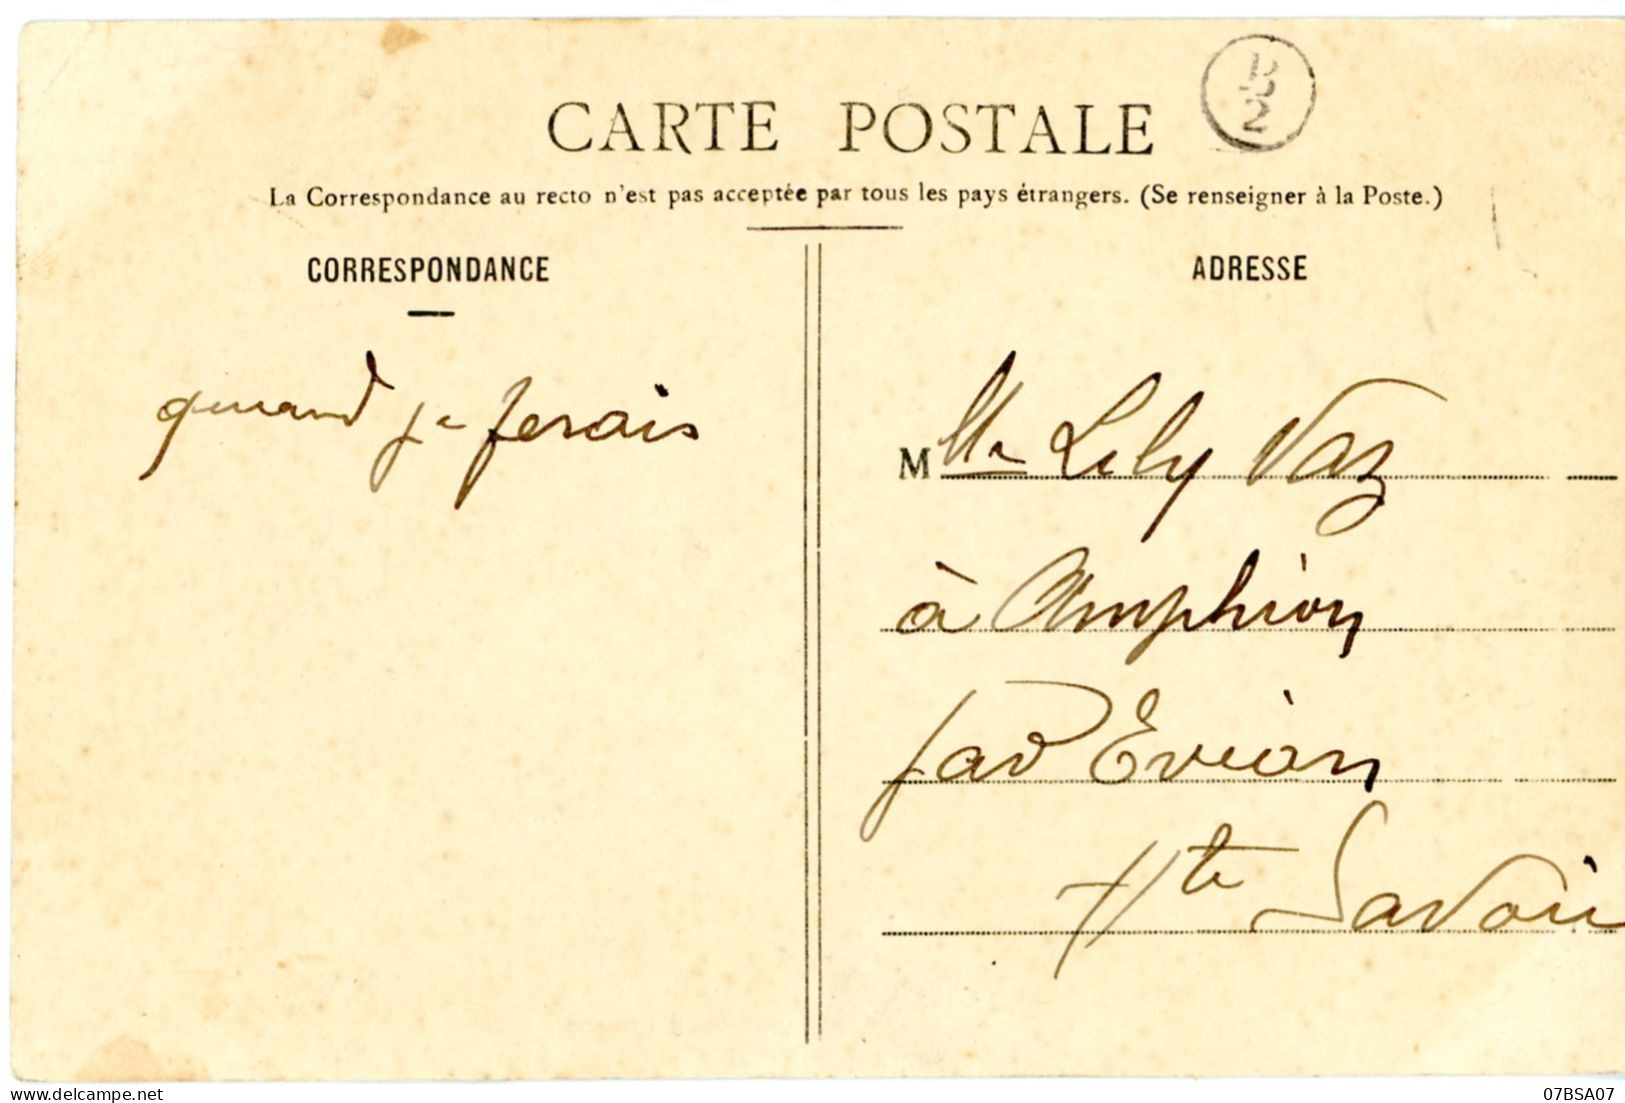 CARTE POSTALE
B
2
La Correspondance au recto n'est pas acceptée par tous les pays étrangers. (Se renseigner à la Poste.)
CORRESPONDANCE
quand je ferais
ADRESSE
Mlle Lily Vaz
à Amphion
par Evian
Hte Savoie
07BSA07